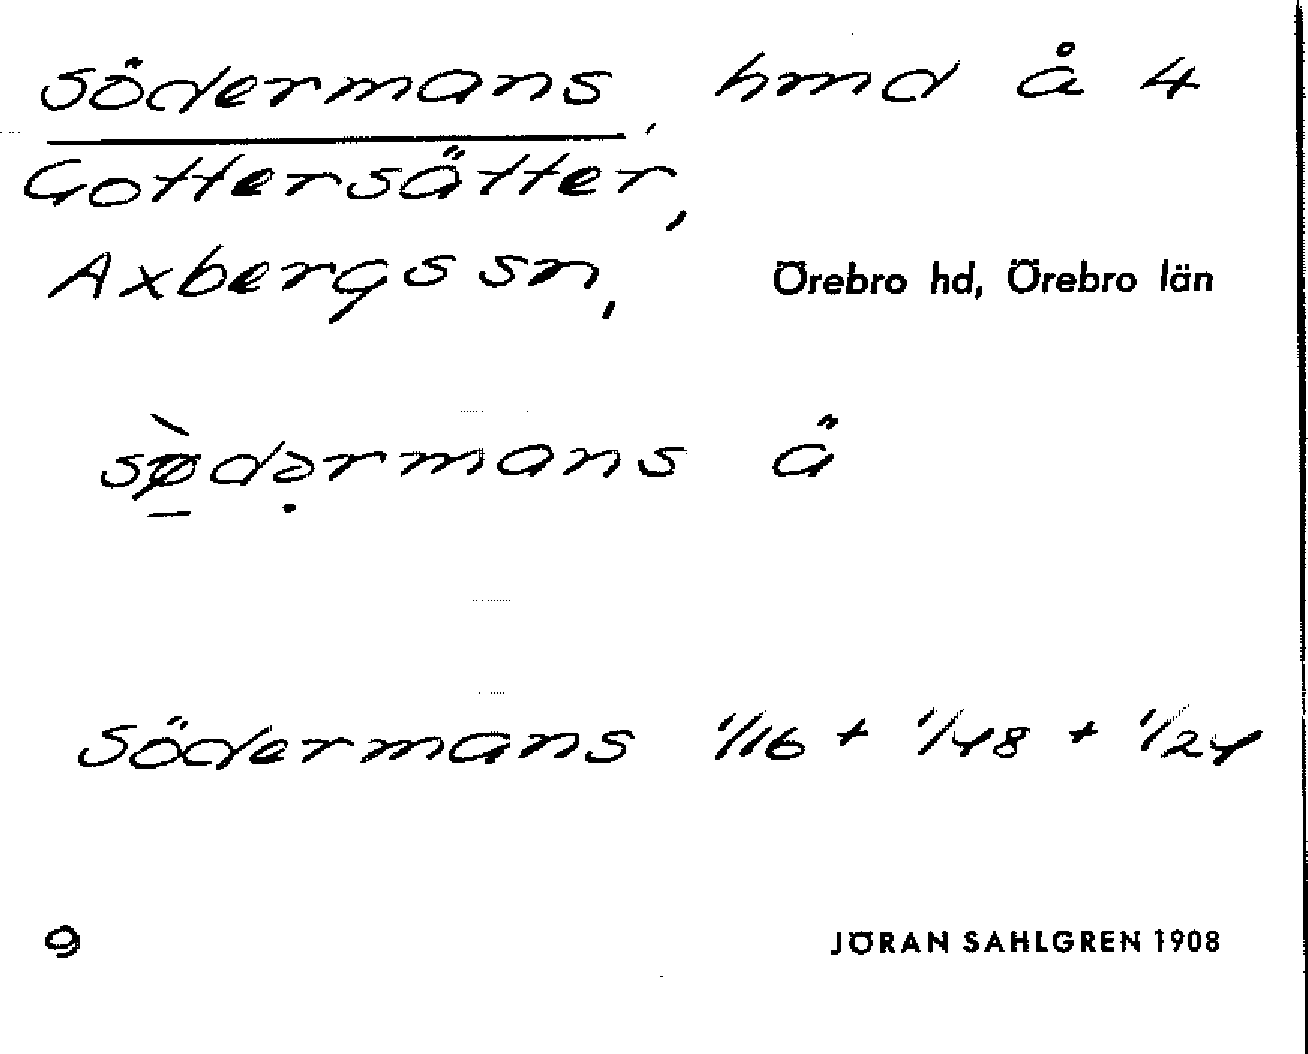 Södermans, hmd å 4
Gottersätter,
Axbergs sn, Örebro hd, Örebro län
sø̀dərmans ä
Södermans 1/16 + 1/48 + 1/24
9 JÖRAN SAHLGREN 1908